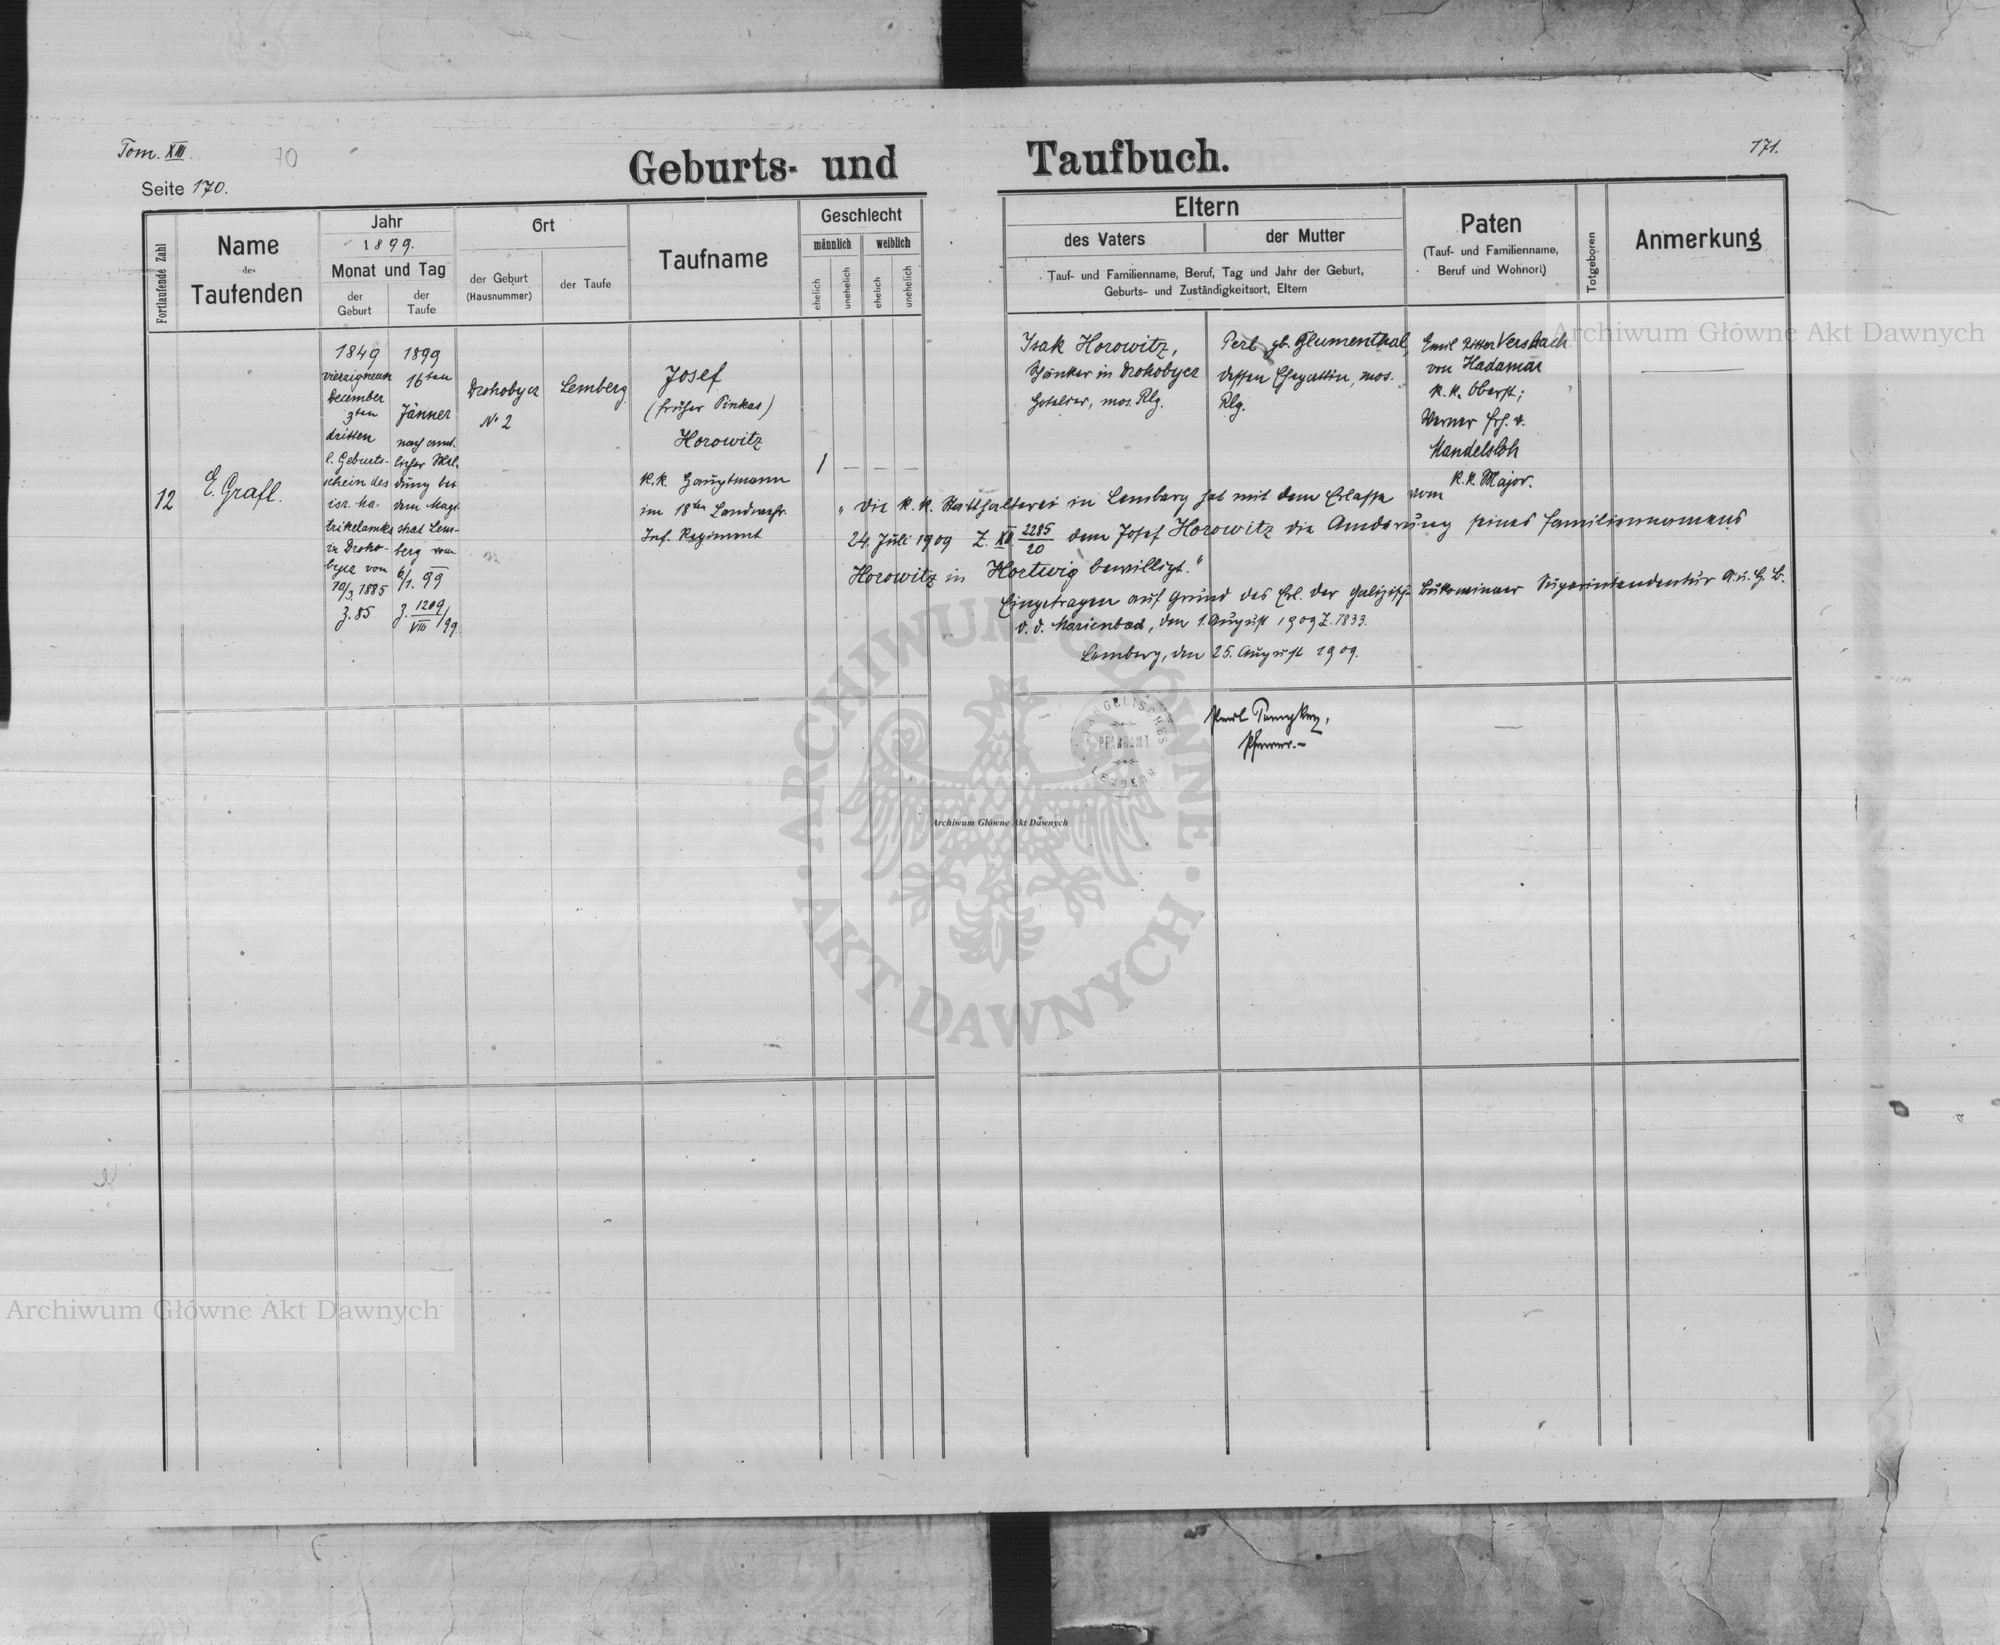 Tom. XIII.
70
Seite 170.
Geburts- und Taufbuch.
171.
Fortlaufende Zahl
Name
des
Taufenden
Jahr
1899.
Monat und Tag
der
Geburt
der
Taufe
Ort
der Geburt
(Hausnummer)
der Taufe
Taufname
Geschlecht
männlich
weiblich
ehelich
unehelich
ehelich
unehelich
Eltern
des Vaters
der Mutter
Tauf- und Familienname, Beruf, Tag und Jahr der Geburt,
Geburts- und Zuständigkeitsort, Eltern
Paten
(Tauf- und Familienname,
Beruf und Wohnort)
Totgeboren
Anmerkung
12
E. Grafl.
1849
vierzigneun
December
3ten
dritten
l. Geburts-
schein des
isr. Ma-
trikelamtes
in Droho-
bycz von
10/3. 1885
Z. 85
1899
16ten
Jänner
nach amt-
licher Mel-
dung bei
dem Magi
strat Lem-
berg vom
6/1. 99
Z. 1209/VIII/99.
Drohobycz
No 2
Lemberg
Josef
(früher Pinkas)
Horowitz
k.k. Hauptmann
im 18ten Landwehr.
Inf. Regiment
1 — — —
Isak Horowitz,
Bänker in Drohobycz
Hotelier, mos. Rlg.
Perl gb. Blumenthal,
dessen Ehegattin, mos.
Rlg.
Emil Ritter Versbach
von Hadamar
k.k. Oberst;
Werner Frh. v.
Mandelsloh
k.k. Major.
„Die k. k. Statthalterei in Lemberg hat mit dem Erlasse vom
24. Juli 1909 Z. XII 2285/20 dem Josef Horowitz die Änderung seines Familiennamens
Horowitz in Hortwig bewilligt."
Eingetragen auf Grund des Erl. der Galizisch Bukowinaer Superintendentur A. u. H. B.
d. d. Marienbad, den 1. August 1909 Z. 1833.
Lemberg, den 25. August 1909.
Pfarrer.-
EVANGELISCHES
PFARRAMT
LEMBERG
Archiwum Główne Akt Dawnych
ARCHIWUM GŁÓWNE · AKT DAWNYCH ·
Archiwum Główne Akt Dawnych
Archiwum Główne Akt Dawnych